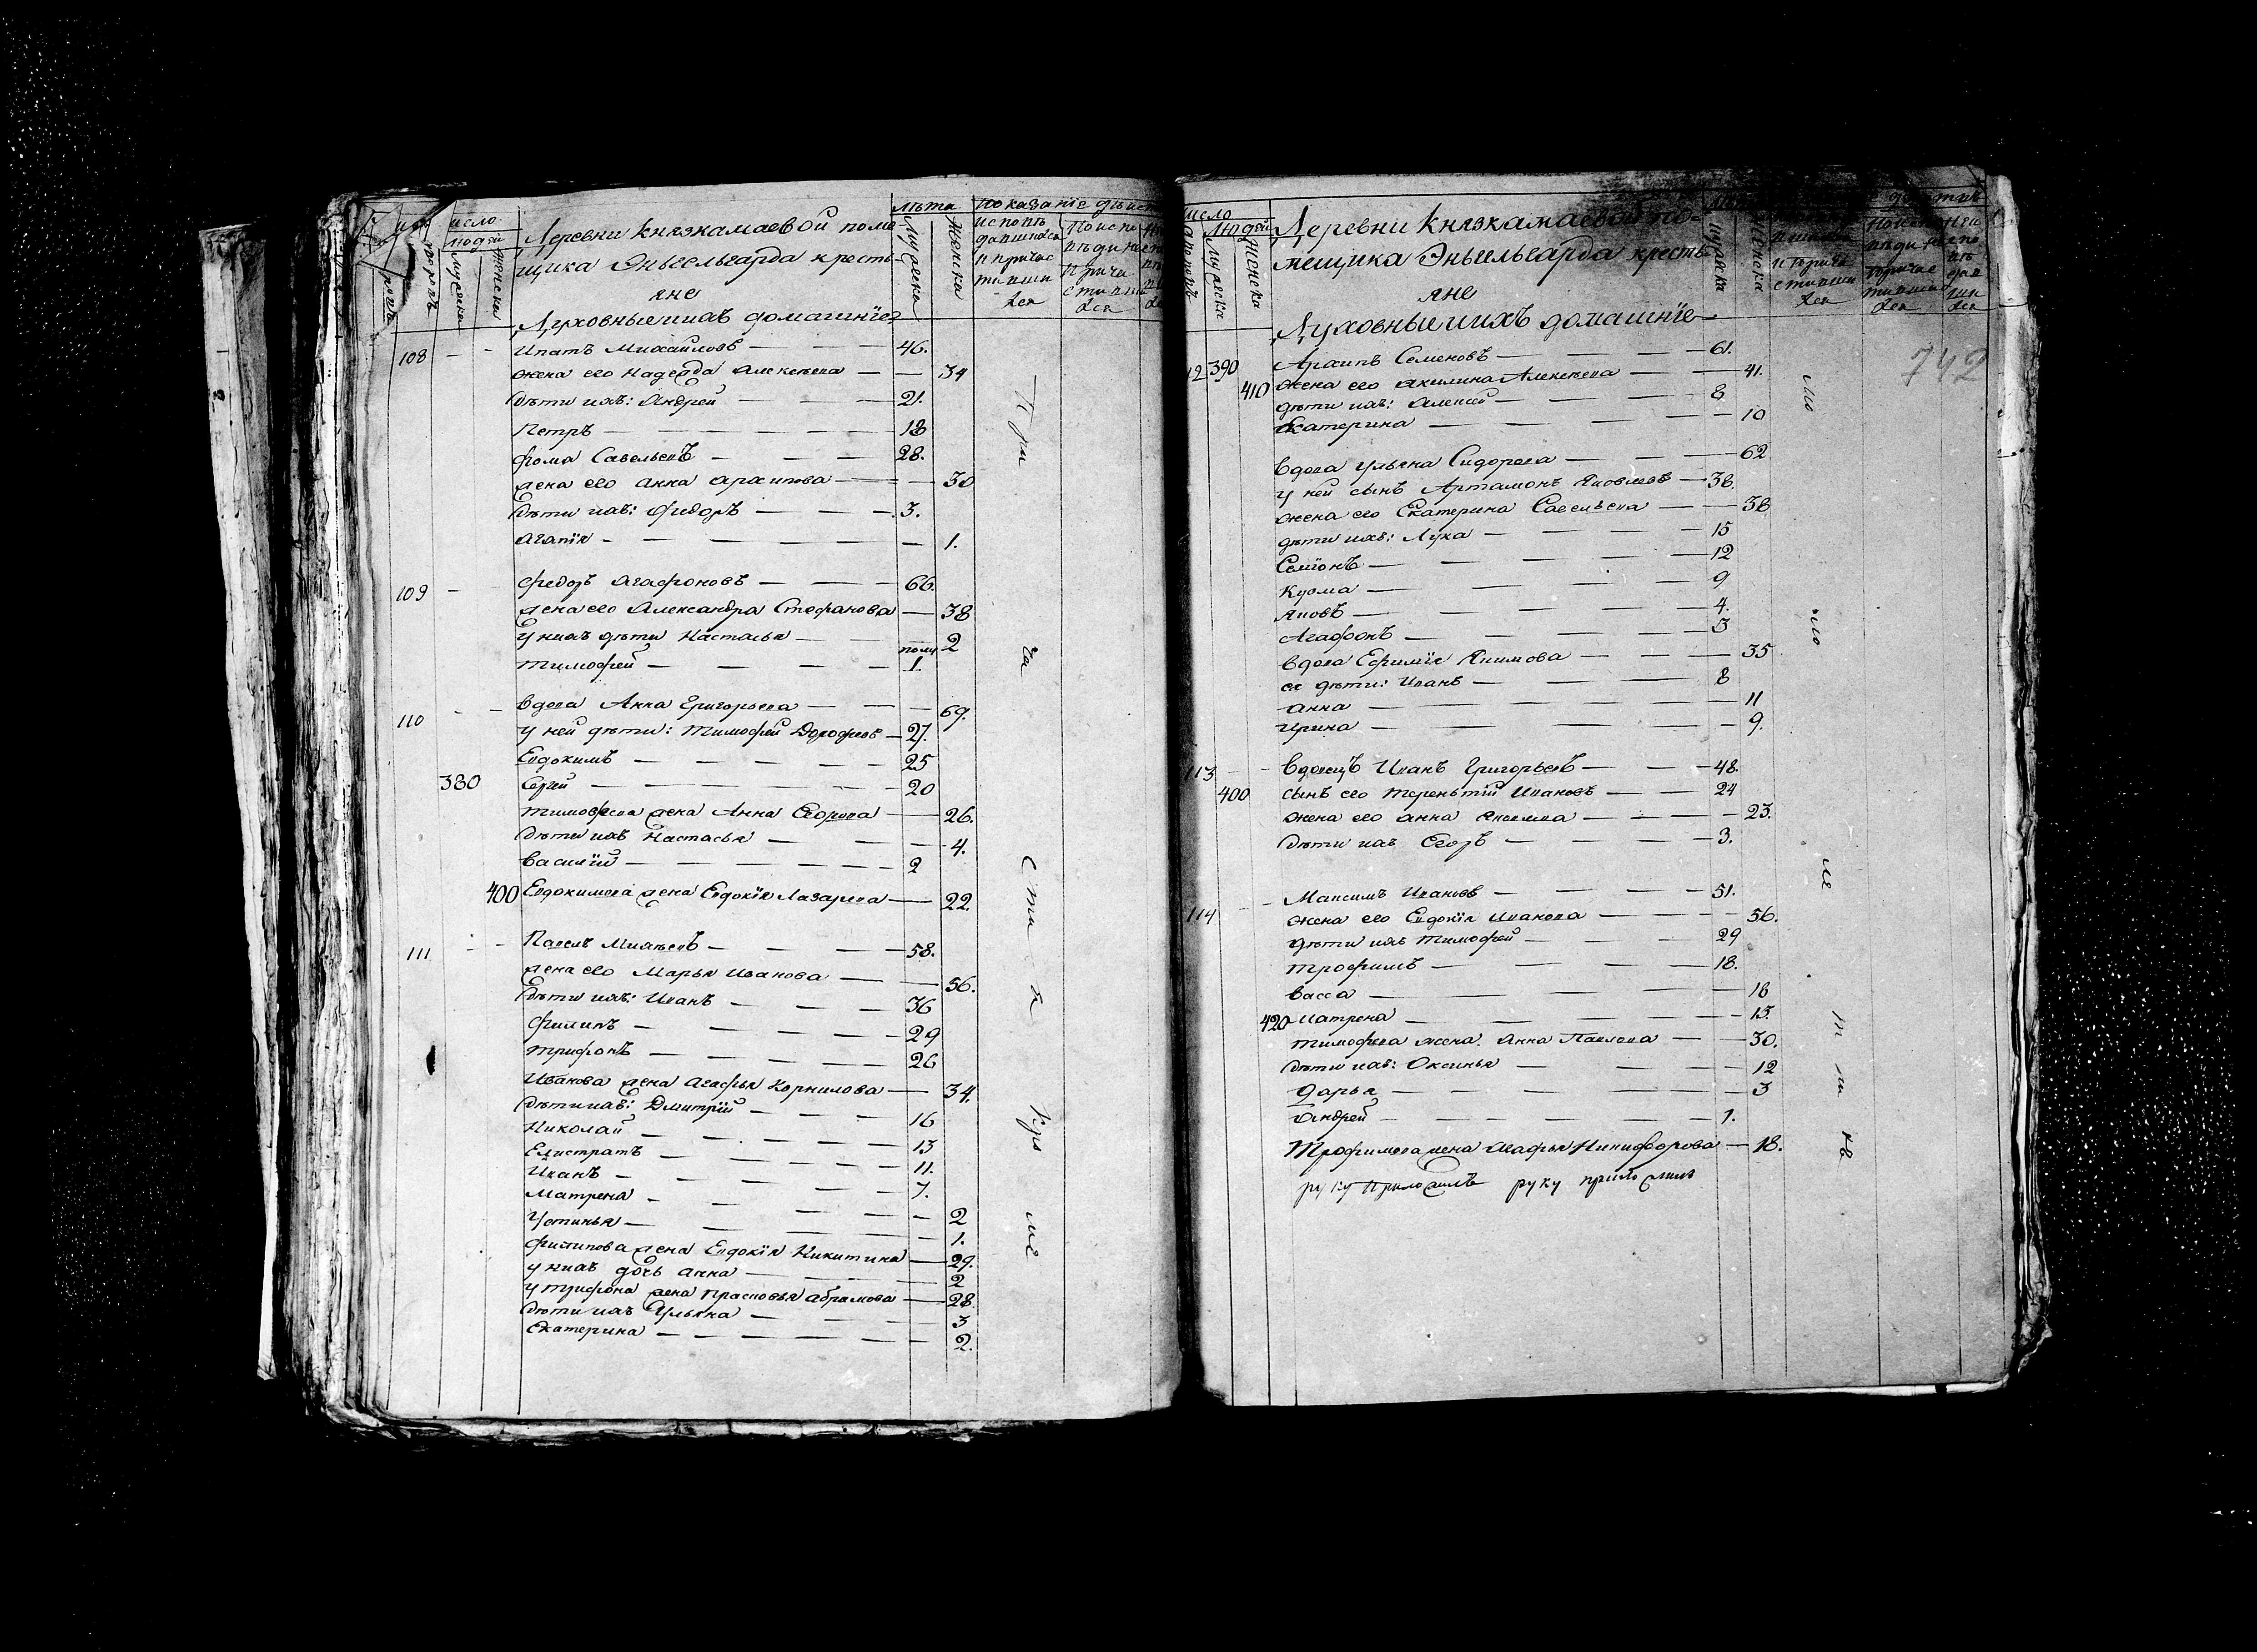 число
людей
мужеска
женска
Деревни Князкамаевой поме
щика Эньгельгарда кресть
яне
Духовные и ихъ домашнїе
лѣта
Мужеска
Женска
показанїе дѣист
исповѣ
давшиеся
и причас
тившїи
ся
108 Ипатъ Михаиловъ 46.
жена его Надежда Алексѣева 34
дѣти ихъ: Андрей 21.
Петръ 18
Фома Савельевъ 28.
жена его Анна Архипова 30
дѣти ихъ: Федоръ 3.
Агапїя 1.
109 Федоръ Агафоновъ 66.
жена его Александра Стефанова 38
у нихъ дѣти Настасья 2
Тимофей полу 1.
110 Вдова Анна Григорьева 69.
у ней дѣти: Тимофей Дорофеевъ 27.
Евдокимъ 25
380 Сергей 20
Тимофеева жена Анна Егорова 26.
дѣти ихъ Настасья 4.
Василїй 2
400 Евдокимова жена Евдокїя Лазарева 22.
111 Павелъ Михѣевъ 58.
жена его Марья Иванова 56.
дѣти ихъ: Иванъ 36
Филипъ 29
Трифонъ 26
Иванова жена Агафья Корнилова 34.
дѣти ихъ: Дмитрїй 16
Николай 13
Елистратъ 11.
Иванъ 7.
Матрена 2
Устинья 1.
Филипова жена Евдокїя Никитина 29.
у нихъ дочь Анна 2
у Трифона жена Прасковья Абрамова 28
дѣти ихъ Ульяна 3
Екатерина 2.
При
ча
сти
я
кро
ме
число
людей
Мужеска
Женска
Деревни Князкамаевой по-
мещика Эньгельгарда кресть
яне
Духовные и ихъ домашнїе
742
12 390 Архипъ Семеновъ 61.
410 жена его Акилина Алексѣева 41.
дѣти ихъ: Алексей 8
Екатерина 10
Вдова Ульяна Сидорова 62
у ней сынъ Артамонъ Яковлевъ 38.
жена его Екатерина Савельева 38
дѣти ихъ: Лука 15
Семїонъ 12
Кузма 9
Яковъ 4.
Агафонъ 3
Вдова Ефимїя Якимова 35
ее дѣти: Иванъ 8
Анна 11
Ирина 9.
113 Вдовецъ Иванъ Григорьевъ 48.
400 сынъ его Тереньтїй Ивановъ 24
жена его Анна Яковлева 23.
дѣти ихъ Егоръ 3.
Максимъ Ивановъ 51.
114 жена его Евдокїя Иванова 56.
дѣти ихъ Тимофей 29
Трофимъ 18.
Васса 16
420 Матрена 13.
Тимофеева жена Анна Павлова 30.
дѣти ихъ: Оксинья 12
Дарья 3
Андрей 1.
Трофимова жена Агафья Никифорова 18.
руку приложилъ руку приложилъ